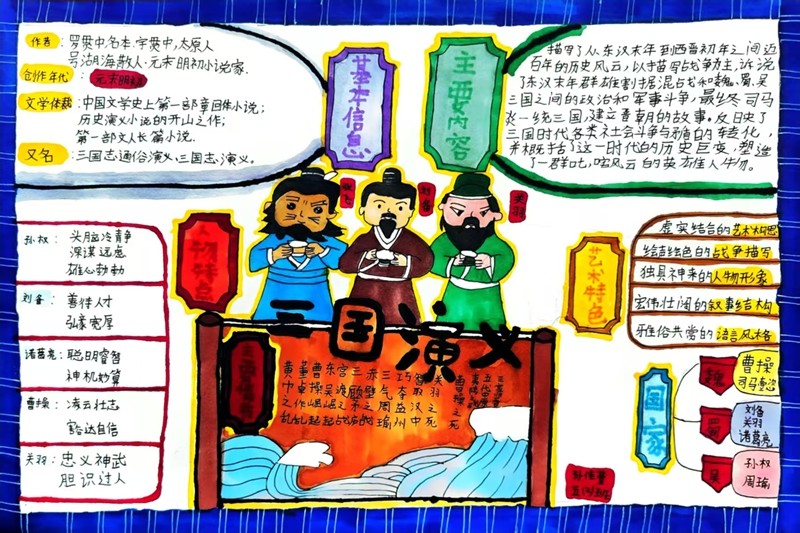 作者：罗贯中,名本,字贯中,太原人
号湖海散人.元末明初小说家.
创作年代：元末明初
文学体裁：中国文学史上第一部章回体小说；
历史演义小说的开山之作；
第一部文人长篇小说.
又名：三国志通俗演义、三国志演义。
基本信息
主要内容
描写了从东汉末年到西晋初年之间近
百年的历史风云，以描写战争为主，诉说
了东汉末年群雄割据混战和魏、蜀、吴
三国之间的政治和军事斗争，最终司马
炎一统三国，建立晋朝的故事。反映了
三国时代各类社会斗争与矛盾的转化，
并概括了这一时代的历史巨变，塑造
了一群叱咤风云的英雄人物。
张飞
刘备
关羽
人物特点
孙权：头脑冷静
深谋远虑
雄心勃勃
刘备：善待人才
弘毅宽厚
诸葛亮：聪明睿智
神机妙算
曹操：凌云壮志
豁达自信
关羽：忠义神武
胆识过人
艺术特色
虚实结合的艺术构思
绘声绘色的战争描写
独具神来的人物形象
宏伟壮阔的叙事结构
雅俗共赏的语言风格
三国演义
黄巾之乱
董卓作乱
曹操崛起
东吴崛起
官渡之战
三顾茅庐
赤壁之战
三气周瑜
巧夺益州
智取汉中
关羽之死
曹操之死
国家
魏
曹操
司马懿
蜀
刘备
关羽
诸葛亮
吴
孙权
周瑜